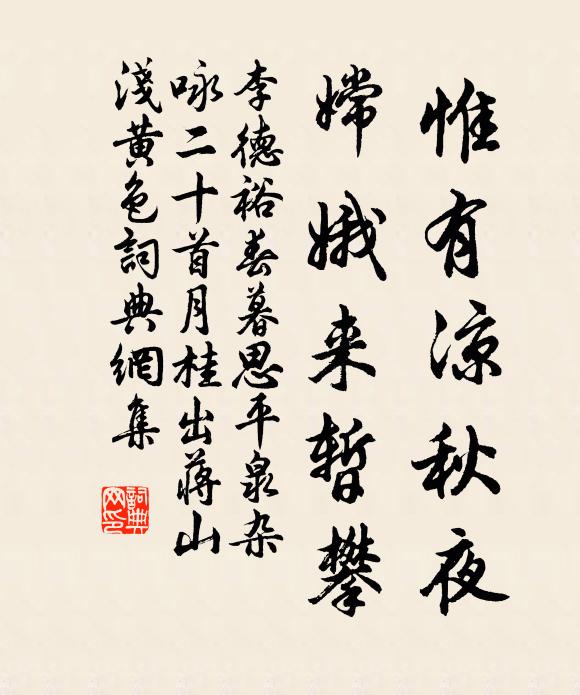 惟有凉秋夜
嫦娥来暫攀
李德裕春暮思平泉杂
咏二十首月桂出蒋山
淺黄色詞典網集
詞典
网印